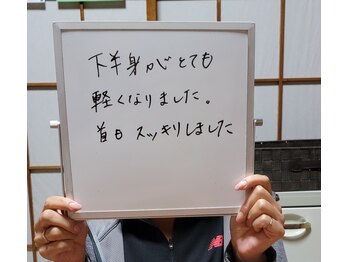 下半身がとても
軽くなりました。
首も スッキリしました